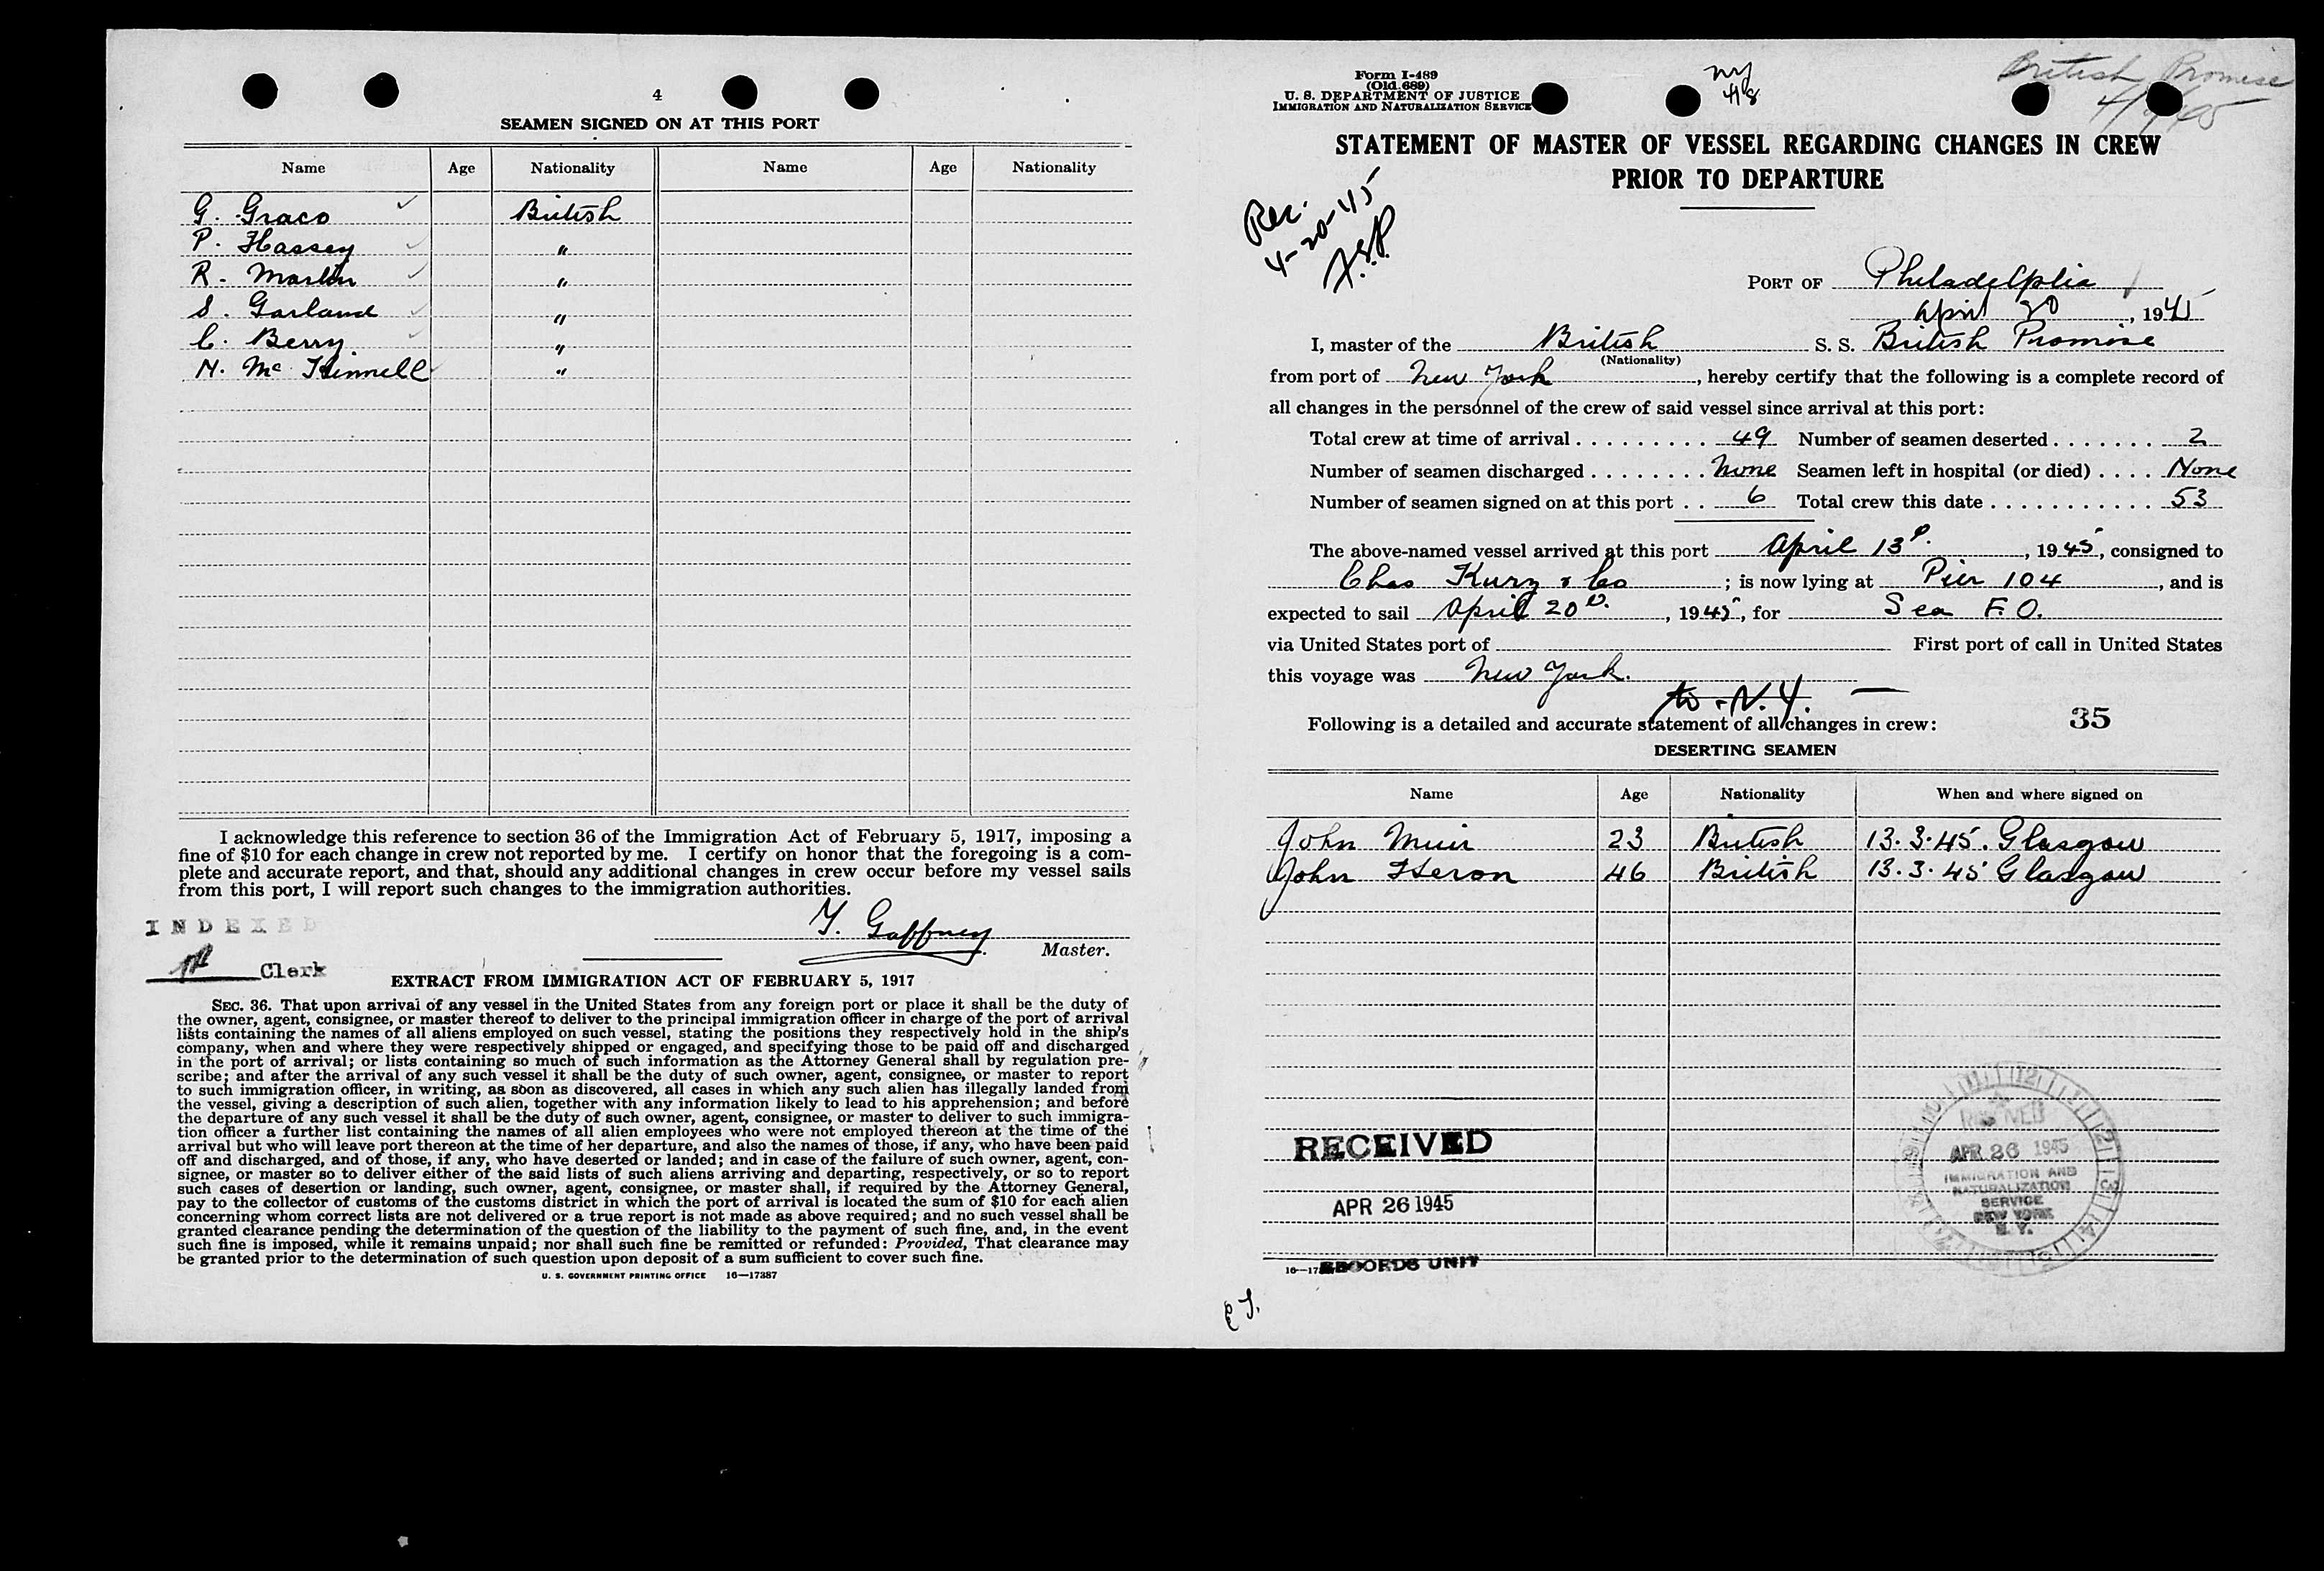 4
SEAMEN SIGNED ON AT THIS PORT
Name Age Nationality Name Age Nationality
G. Graco British
P. Hassey "
R. Martin "
S. Garland "
C. Berry "
N. Mc Kinnell "
I acknowledge this reference to section 36 of the Immigration Act of February 5, 1917, imposing a
fine of $10 for each change in crew not reported by me. I certify on honor that the foregoing is a com-
plete and accurate report, and that, should any additional changes in crew occur before my vessel sails
from this port, I will report such changes to the immigration authorities.
INDEXED
Gaffney
Master.
Clerk
EXTRACT FROM IMMIGRATION ACT OF FEBRUARY 5, 1917
SEC. 36. That upon arrival of any vessel in the United States from any foreign port or place it shall be the duty of
the owner, agent, consignee, or master thereof to deliver to the principal immigration officer in charge of the port of arrival
lists containing the names of all aliens employed on such vessel, stating the positions they respectively hold in the ship's
company, when and where they were respectively shipped or engaged, and specifying those to be paid off and discharged
in the port of arrival; or lists containing so much of such information as the Attorney General shall by regulation pre-
scribe; and after the arrival of any such vessel it shall be the duty of such owner, agent, consignee, or master to report
to such immigration officer, in writing, as soon as discovered, all cases in which any such alien has illegally landed from
the vessel, giving a description of such alien, together with any information likely to lead to his apprehension; and before
the departure of any such vessel it shall be the duty of such owner, agent, consignee, or master to deliver to such immigra-
tion officer a further list containing the names of all alien employees who were not employed thereon at the time of the
arrival but who will leave port thereon at the time of her departure, and also the names of those, if any, who have been paid
off and discharged, and of those, if any, who have deserted or landed; and in case of the failure of such owner, agent, con-
signee, or master so to deliver either of the said lists of such aliens arriving and departing, respectively, or so to report
such cases of desertion or landing, such owner, agent, consignee, or master shall, if required by the Attorney General,
pay to the collector of customs of the customs district in which the port of arrival is located the sum of $10 for each alien
concerning whom correct lists are not delivered or a true report is not made as above required; and no such vessel shall be
granted clearance pending the determination of the question of the liability to the payment of such fine, and, in the event
such fine is imposed, while it remains unpaid; nor shall such fine be remitted or refunded: Provided, That clearance may
be granted prior to the determination of such question upon deposit of a sum sufficient to cover such fine.
U. S. GOVERNMENT PRINTING OFFICE 16—17387
Form I-489
(Old 689)
U. S. DEPARTMENT OF JUSTICE
IMMIGRATION AND NATURALIZATION SERVICE
ny
4/8
British Promise
STATEMENT OF MASTER OF VESSEL REGARDING CHANGES IN CREW
PRIOR TO DEPARTURE
Rec.
4-20-45
PORT OF Philadelphia
April 20, 1945
I, master of the British S. S. British Promise
(Nationality)
from port of New York, hereby certify that the following is a complete record of
all changes in the personnel of the crew of said vessel since arrival at this port:
Total crew at time of arrival . . . . . . . . . . 49 Number of seamen deserted . . . . . . . 2
Number of seamen discharged . . . . . . . . None Seamen left in hospital (or died) . . . . None
Number of seamen signed on at this port . . 6 Total crew this date . . . . . . . . . . . . 53
The above-named vessel arrived at this port April 13, 1945, consigned to
Chas Kurz & Co; is now lying at Pier 104, and is
expected to sail April 20, 1945, for Sea F.O.
via United States port of First port of call in United States
this voyage was New York.
to N.Y. —
Following is a detailed and accurate statement of all changes in crew: 35
DESERTING SEAMEN
Name Age Nationality When and where signed on
John Muir 23 British 13.3.45. Glasgow
John Heron 46 British 13.3.45 Glasgow
RECEIVED
APR 26 1945
RECORDS UNIT
RECEIVED
APR 26 1945
IMMIGRATION AND
NATURALIZATION
SERVICE
NEW YORK
N. Y.